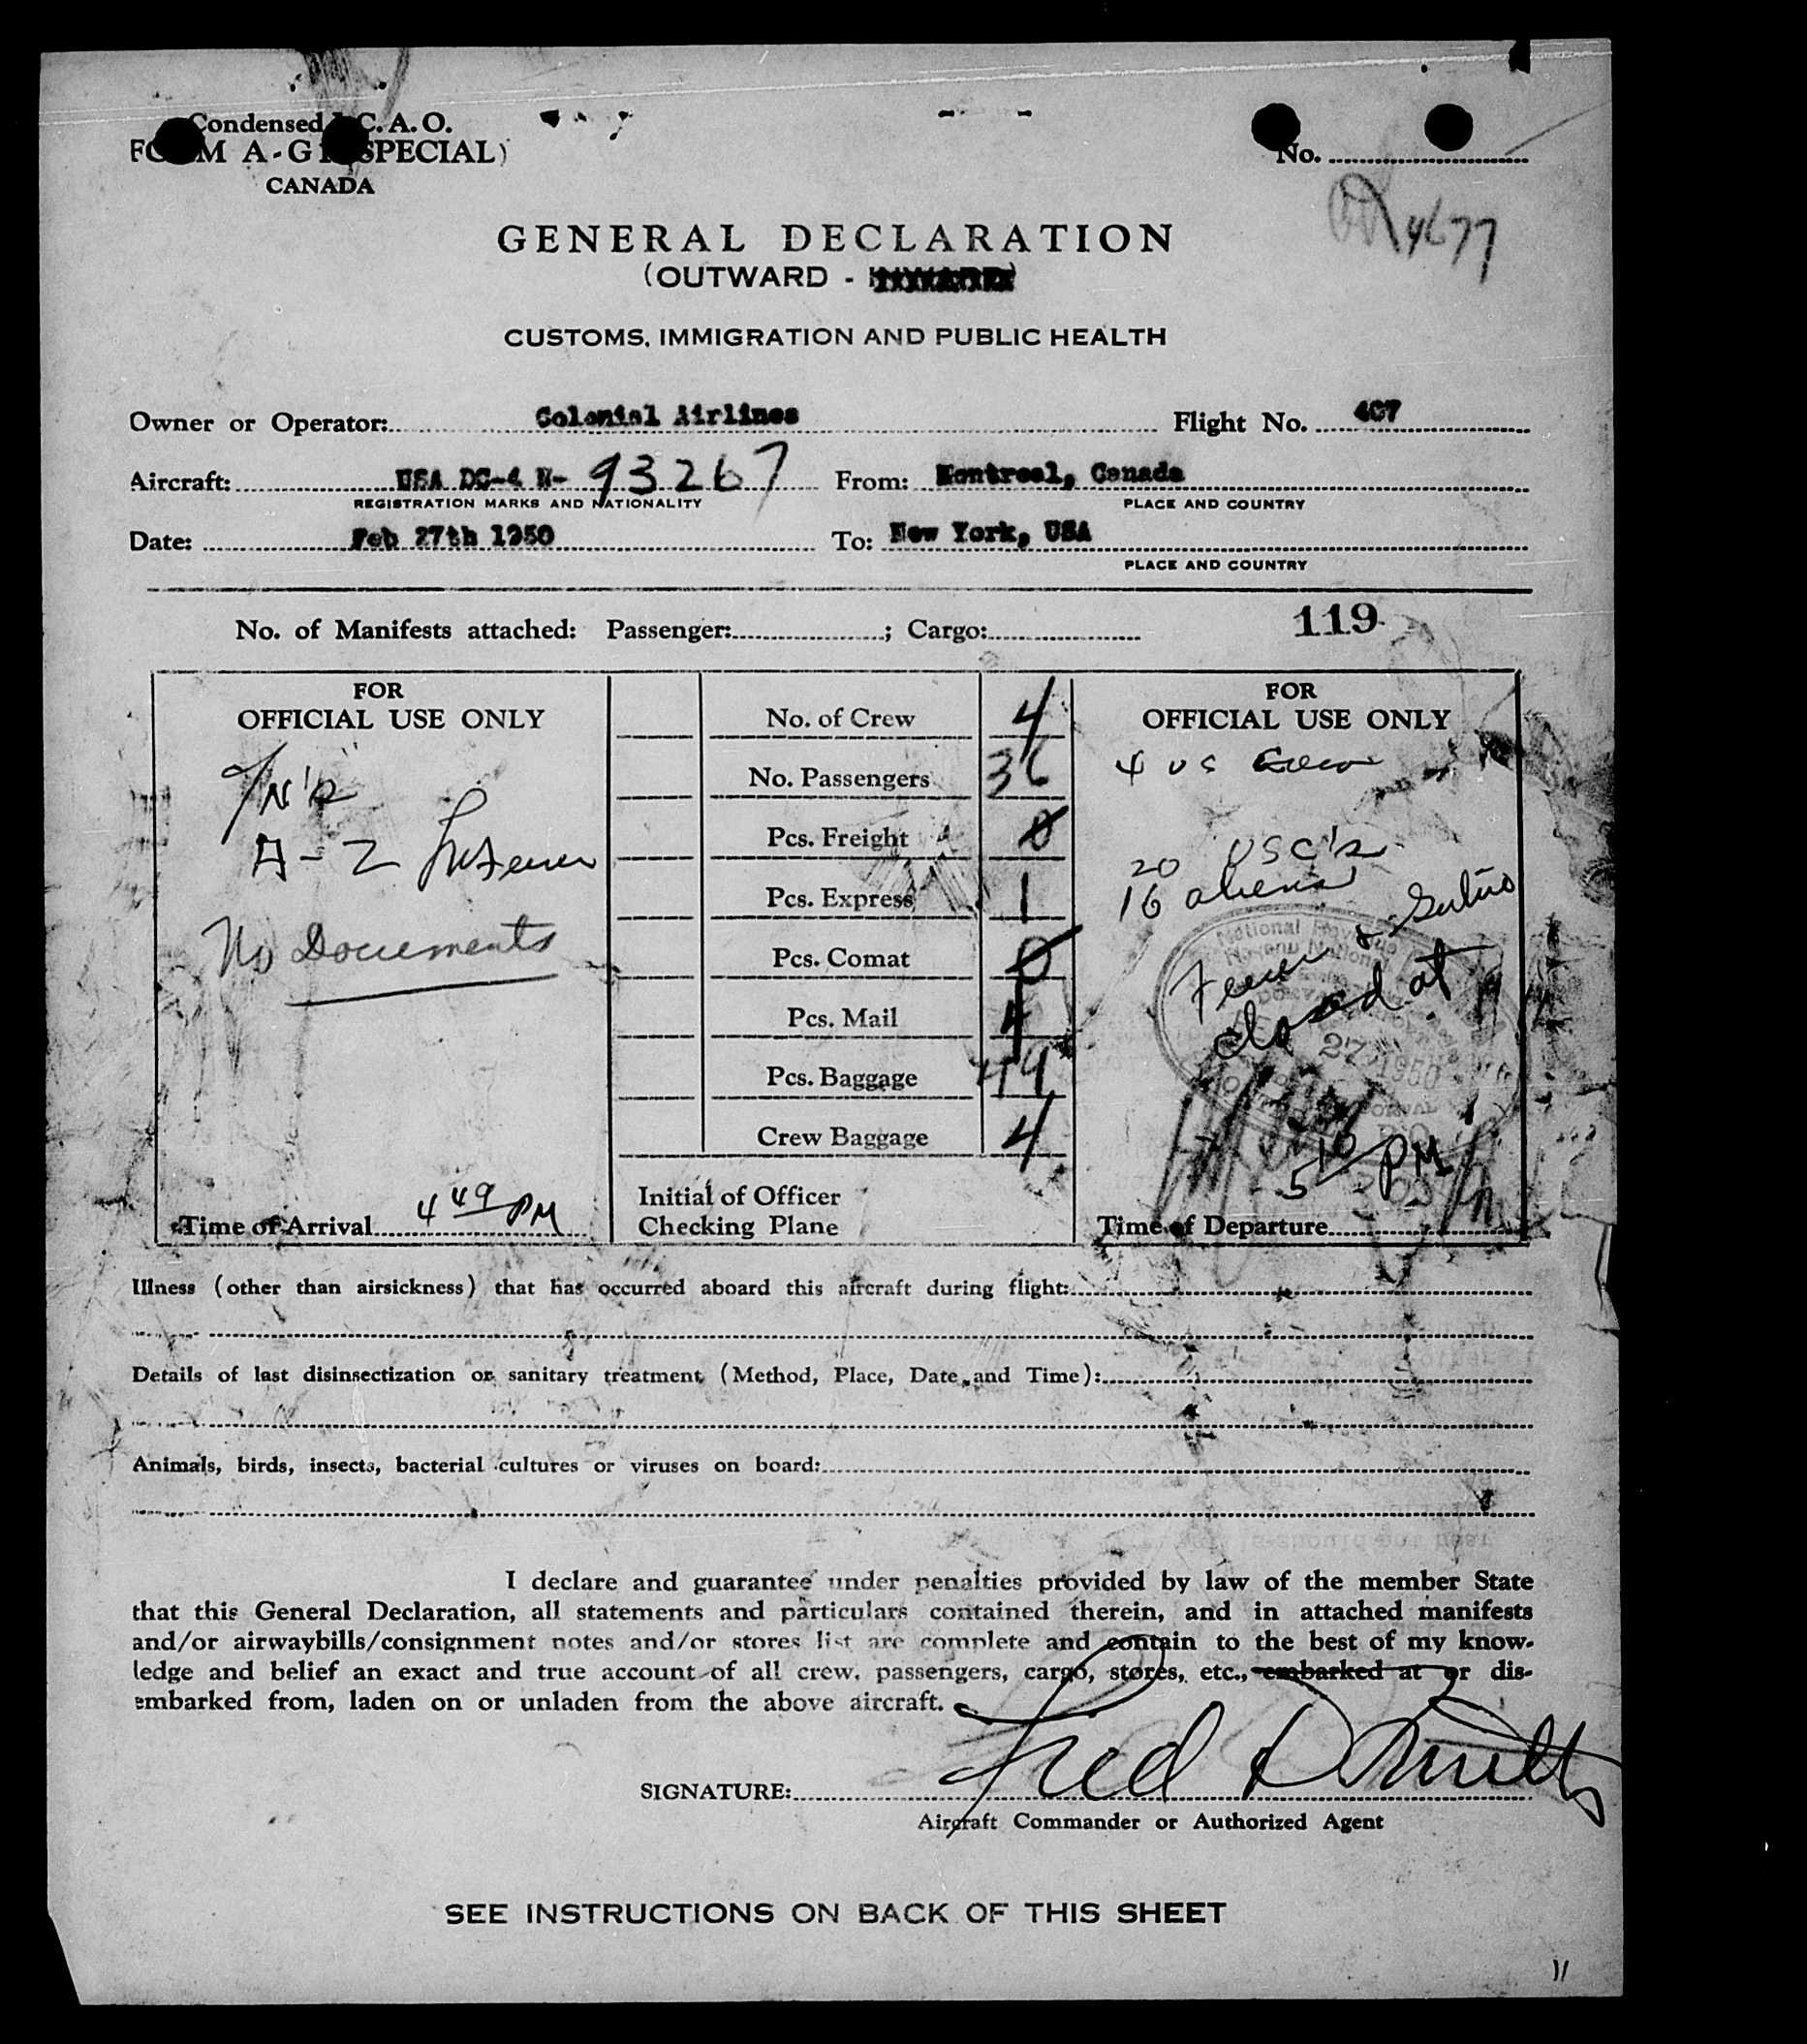 Condensed I. C. A. O.
FORM A-G1 (SPECIAL)
CANADA
No.
4677
GENERAL DECLARATION
(OUTWARD - INWARD)
CUSTOMS, IMMIGRATION AND PUBLIC HEALTH
Owner or Operator: Colonial Airlines Flight No. 407
Aircraft: USA DC-4 N- 93267 From: Montreal, Canada
REGISTRATION MARKS AND NATIONALITY PLACE AND COUNTRY
Date: Feb 27th 1950 To: New York, USA
PLACE AND COUNTRY
No. of Manifests attached: Passenger: ; Cargo: 119
FOR
OFFICIAL USE ONLY
No Documents
Time of Arrival 4 49 PM
No. of Crew 4
No. Passengers 36
Pcs. Freight 0
Pcs. Express 1
Pcs. Comat 0
Pcs. Mail 4
Pcs. Baggage 49
Crew Baggage 4
Initial of Officer
Checking Plane
FOR
OFFICIAL USE ONLY
4 US Crew
20 USC's
16 aliens
closed at
National Revenue
Revenu National
27 1950
5 10 PM
Time of Departure
Illness (other than airsickness) that has occurred aboard this aircraft during flight:
Details of last disinsectization or sanitary treatment (Method, Place, Date and Time):
Animals, birds, insects, bacterial cultures or viruses on board:
I declare and guarantee under penalties provided by law of the member State
that this General Declaration, all statements and particulars contained therein, and in attached manifests
and/or airwaybills/consignment notes and/or stores list are complete and contain to the best of my know-
ledge and belief an exact and true account of all crew, passengers, cargo, stores, etc., embarked at or dis-
embarked from, laden on or unladen from the above aircraft.
SIGNATURE: Fred
Aircraft Commander or Authorized Agent
SEE INSTRUCTIONS ON BACK OF THIS SHEET
11